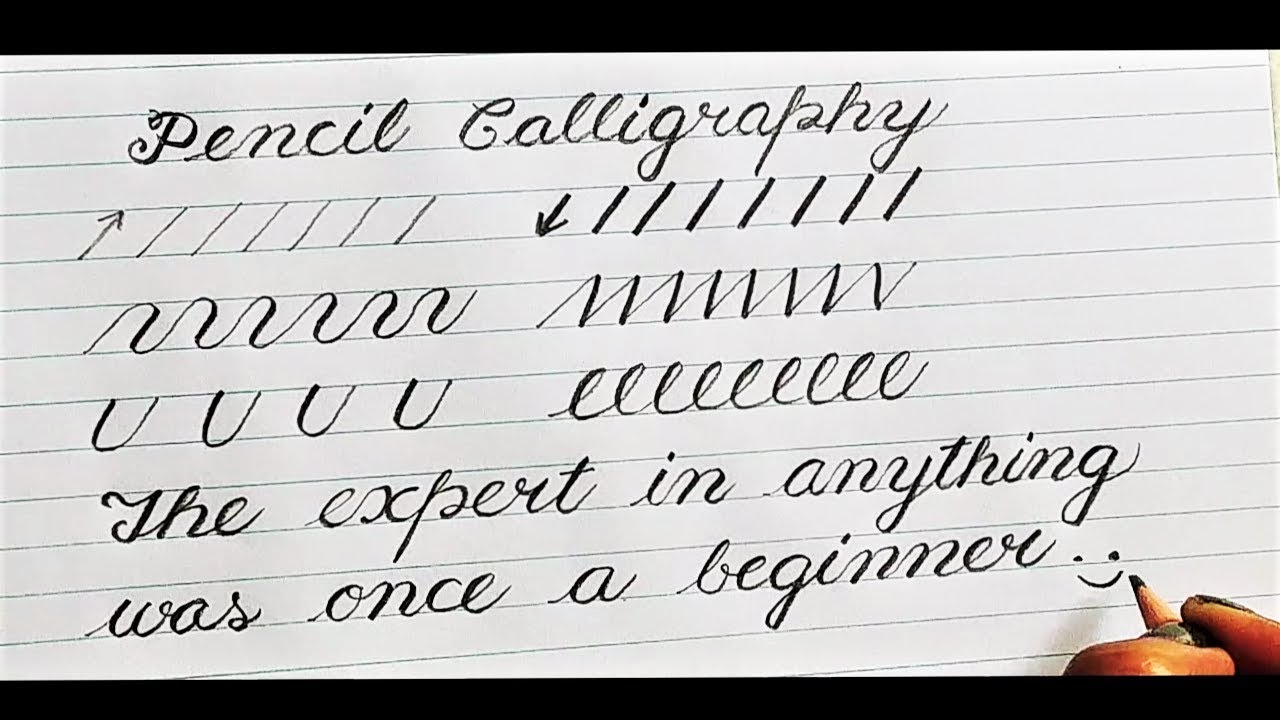 Pencil Calligraphy
The expert in anything
was once a beginner..